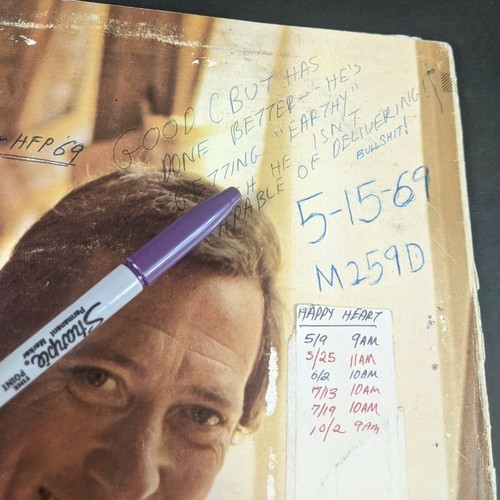 GOOD (BUT HAS
DONE BETTER - HE'S
GETTING "EARTHY"
HE ISN'T
CAPABLE OF DELIVERING IT
BULLSHIT!
- HFP '69
5-15-69
M259D
HAPPY HEART
5/9 9AM
5/25 11AM
6/2 10AM
7/13 10AM
7/19 10AM
10/2 9AM
Sharpie
Permanent Marker
FINE
POINT